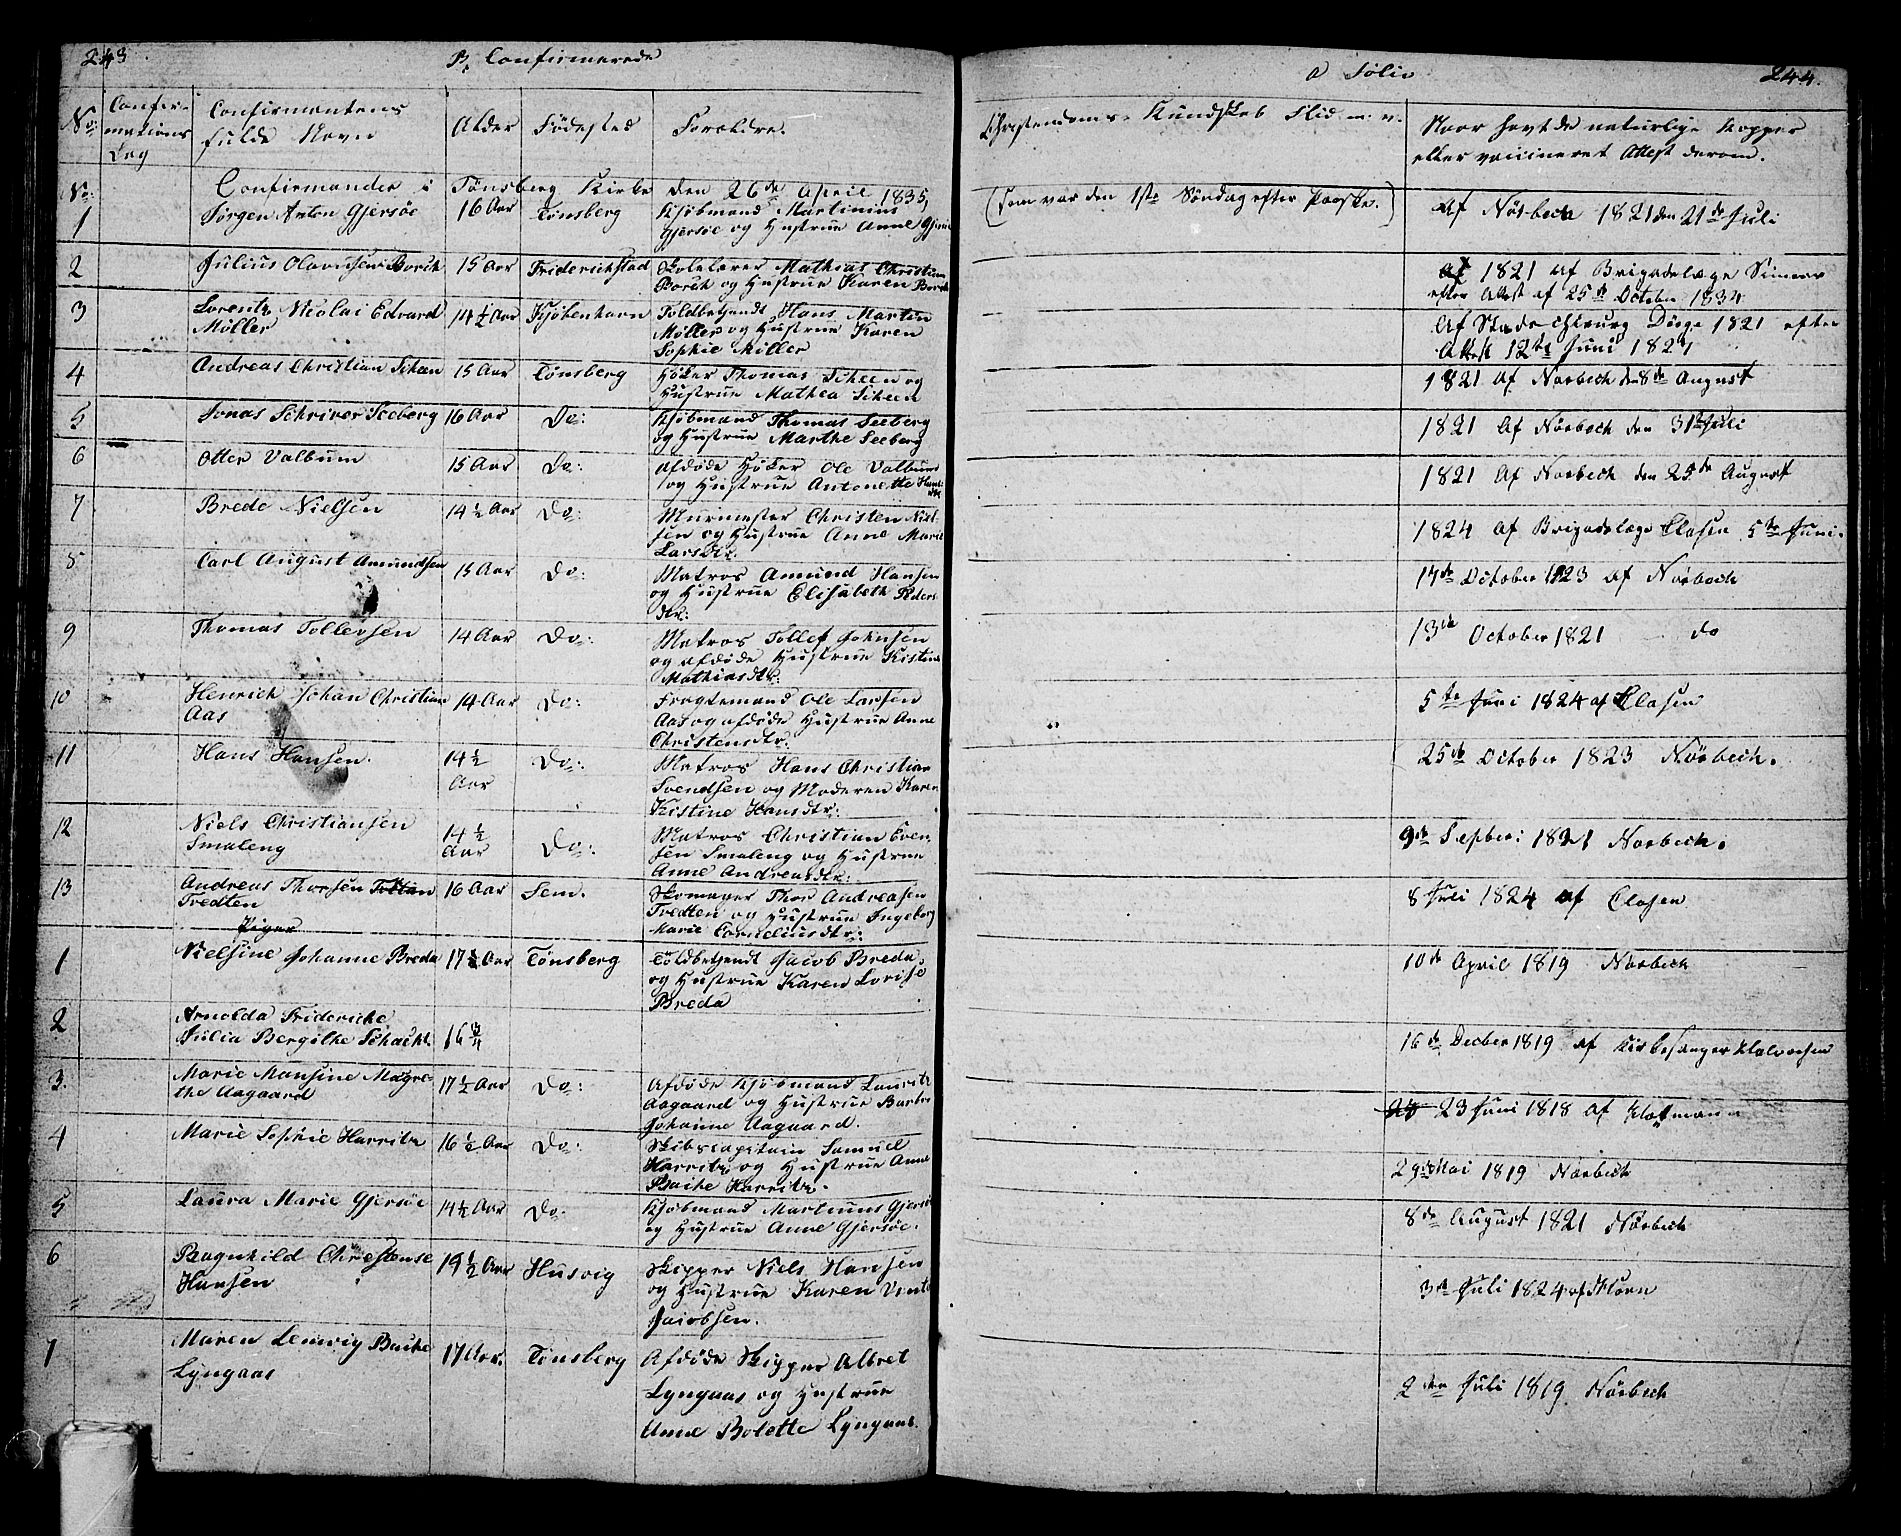 243
B, Confirmerede
No:
Confir-
mations
Dag
Confirmantens
fulde Navn
Alder
Fødested
Forældre.
No:
Confirmander i Tønsberg Kirke den 26de April 1835,
1
Jørgen Anton Gjersøe
16 Aar
Tønsberg
Kjøbmand Martinius
Gjersøe og Hustrue Anne Gjersøe
2
Julius Olavusen Borch
15 Aar
Friderichstad
Skolelærer Mathias Christian
Borch og Hustrue Karen Borch
3
Lorentz Nicolai Edvard
Møller
14 1/2 Aar
Kjøbenhavn
Toldbetjendt Hans Martin
Møller og Hustrue Karen
Sophie Møller
4
Andreas Christian Scheen
15 Aar
Tønsberg
Høker Thomas Scheen og
Hustrue Mathea Scheen
5
Jonas Schriver Seeberg
16 Aar
Do:
Kjøbmand Thomas Seeberg
og Hustrue Marthe Seeberg
6
Otter Valbum
15 Aar
Do:
Afdøde Høker Ole Valbum
og Hustrue Antonette
7
Brede Nielsen
14 1/2 Aar
Do:
Murmester Christen Niel-
sen og Hustrue Anne Marie
Larsdtr:
8
Carl August Amundsen
15 Aar
Do:
Matros Amund Hansen
og Hustrue Elisabeth Peders
dtr:
9
Thomas Tollevsen
14 Aar
Do:
Matros Tollef Johnsen
og afdøde Hustrue Kistine
Mathiasdtr:
10
Henrich Johan Christian
Aas
14 Aar
Do:
Fragtemand Ole Larsen
Aas og afdøde Hustrue Anne
Christensdtr:
11
Hans Hansen.
14 1/2
Aar
Do:
Matros Hans Christian
Svendsen og Moderen Karen
Kistine Hansdtr:
12
Niels Christiansen
Smaleng
14 1/2
Aar
Do:
Matros Christian Even-
sen Smaleng og Hustrue
Anne Andreasdtr:
13
Andreas Thorsen
Tredten
16 Aar
Sem.
Skomager Thor Andreasen
Tredten og Hustrue Ingeborg
Marie Corneliusdtr:
Piger
1
Nielsine Johanne Breda
17 Aar
Tønsberg
Toldbetjendt Jacob Breda
og Hustrue Karen Lovise
Breda
2
Arnolda Frideriche
Julia Bergithe Schacht
16 3/4
3.
Marie Mansine Magre-
the Aagaard
17 1/2 Aar
Do:
Afdøde Kjøbmand Lauritz
Aagaard og Hustrue Barbra
Johanne Aagaard.
4
Marie Sophie Harritz
16 1/2 Aar
Do:
Skibscapitain Samuel
Harritz og Hustrue Anne
Bache Harritz.
5
Laura Marie Gjersøe
14 1/2 Aar
Do:
Kjøbmand Martinus Gjersøe
og Hustrue Anne Gjersøe.
6
Ragnhild Christense
Hansen
19 1/2 Aar
Husvig
Skipper Niels Hansen
og Hustrue Karen
Jacobsen.
7
Maren Lemvig Bache
Lyngaas
17 Aar.
Tønsberg
Afdøde Skipper Albret
Lyngaas og Hustrue
Anne Bolette Lyngaas.
a Folio
244.
Christendoms-Kundskab Flid m: v.
Naar havt de naturlige Kopper
eller vaccineret Attest derom.
(som var den 1ste Søndag efter Paaske.)
Af Nørbech 1821 den 21de Juli
1821 af Brigadelæge
efter Attest af 25de October 1834
Af Stads Chirurg Dørge 1821 efter
Attest 12te Juni 1821
1821 af Nørbech den 8de August
1821 Af Nørbech den 31te Juli
1821 Af Nørbech den 25de August
1824 af Brigadelæge Clasen 5te Juni.
17de October 1823 af Nørbech
13de October 1821 do
5te Juni 1824 af Clasen
25de October 1823 Nørbech.
9de Septber: 1821 Nørbech.
8 Juli 1824 af Clasen
10de April 1819 Nørbech
16de Decber 1819 af Kirkesanger Halvorsen
23 Juni 1818 af
29de Mai 1819 Nørbech
8de August 1821 Nørbech
3de Juli 1824 af
2den Juli 1819 Nørbech